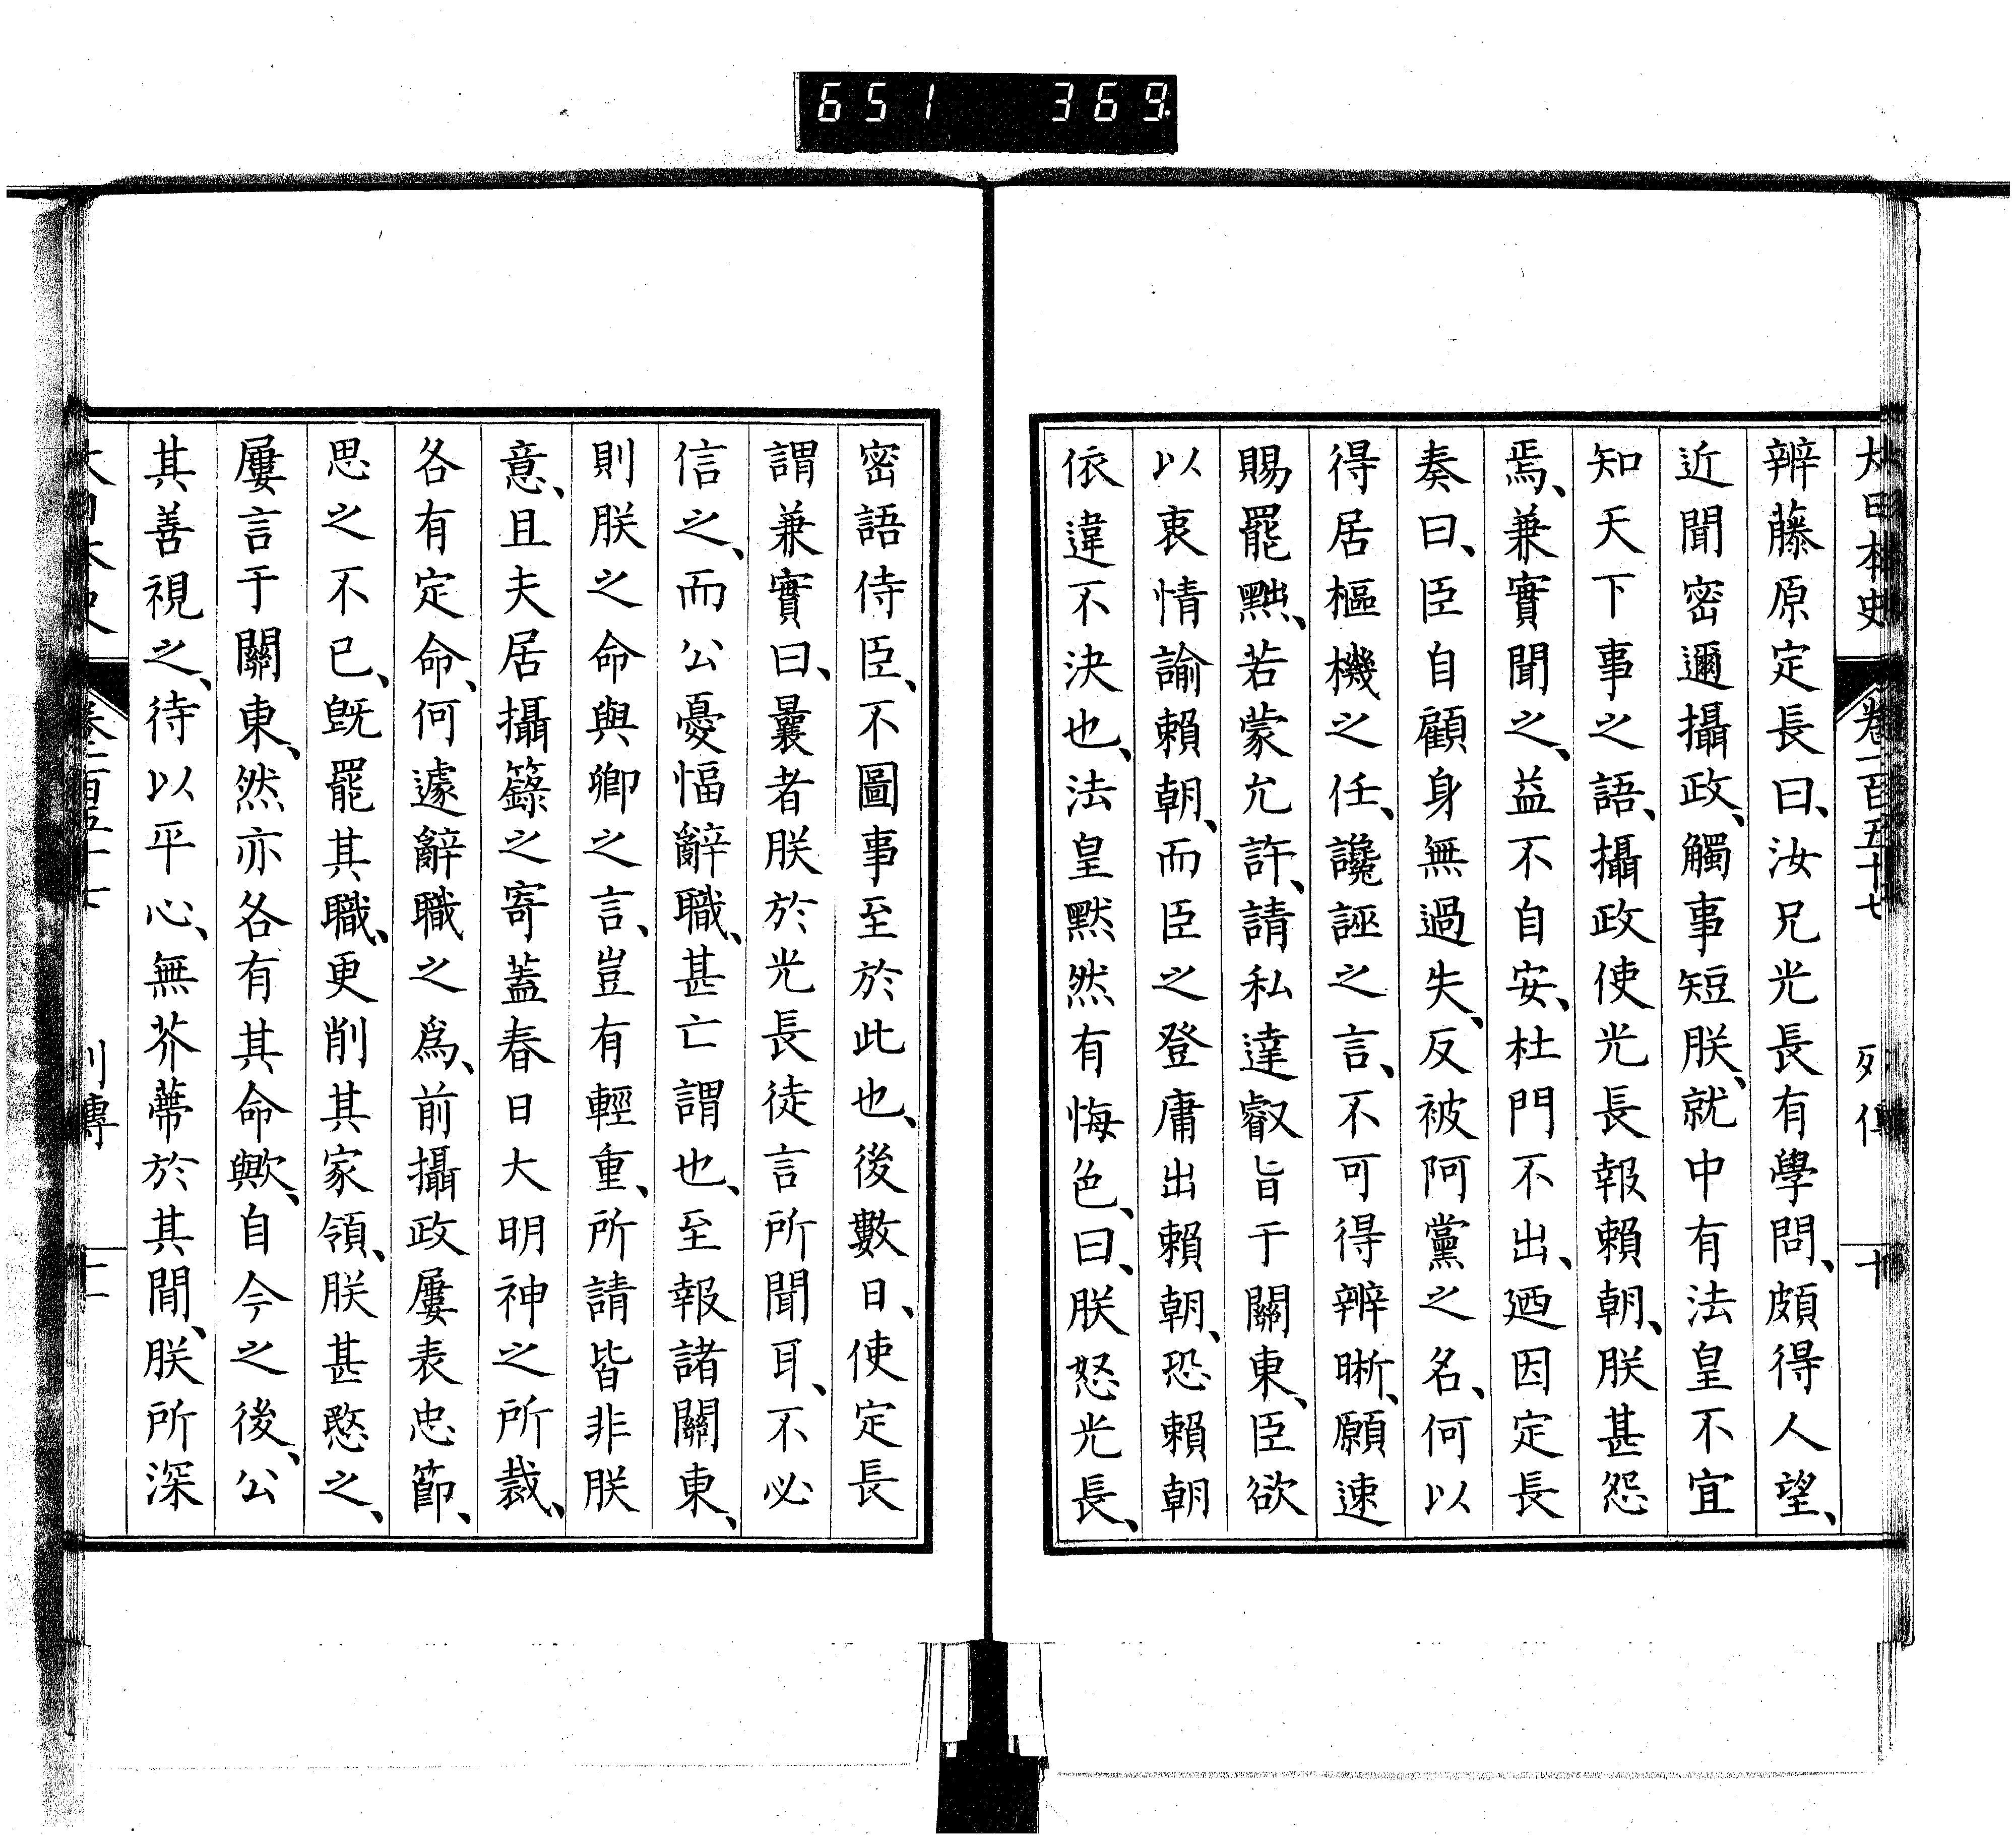 651 369
大日本史 卷一百五十七 列傳 十
辨藤原定長曰、汝兄光長有學問、頗得人望、
近聞密邇攝政、觸事短朕、就中有法皇不宜
知天下事之語、攝政使光長報賴朝、朕甚怨
焉、兼實聞之、益不自安、杜門不出、廼因定長
奏曰、臣自顧身無過失、反被阿黨之名、何以
得居樞機之任、讒誣之言、不可得辨晰、願速
賜罷黜、若蒙允許、請私達叡旨于關東、臣欲
以衷情諭賴朝、而臣之登庸出賴朝、恐賴朝
依違不決也、法皇默然有悔色、曰、朕怒光長、
密語侍臣、不圖事至於此也、後數日、使定長
謂兼實曰、曩者朕於光長徒言所聞耳、不必
信之、而公憂愊辭職、甚亡謂也、至報諸關東、
則朕之命與卿之言、豈有輕重、所請皆非朕
意、且夫居攝籙之寄蓋春日大明神之所裁、
各有定命、何遽辭職之爲、前攝政屢表忠節、
思之不已、既罷其職、更削其家領、朕甚愍之、
屢言于關東、然亦各有其命歟、自今之後、公
其善視之、待以平心、無芥蔕於其間、朕所深
大日本史 卷一百五十七 列傳